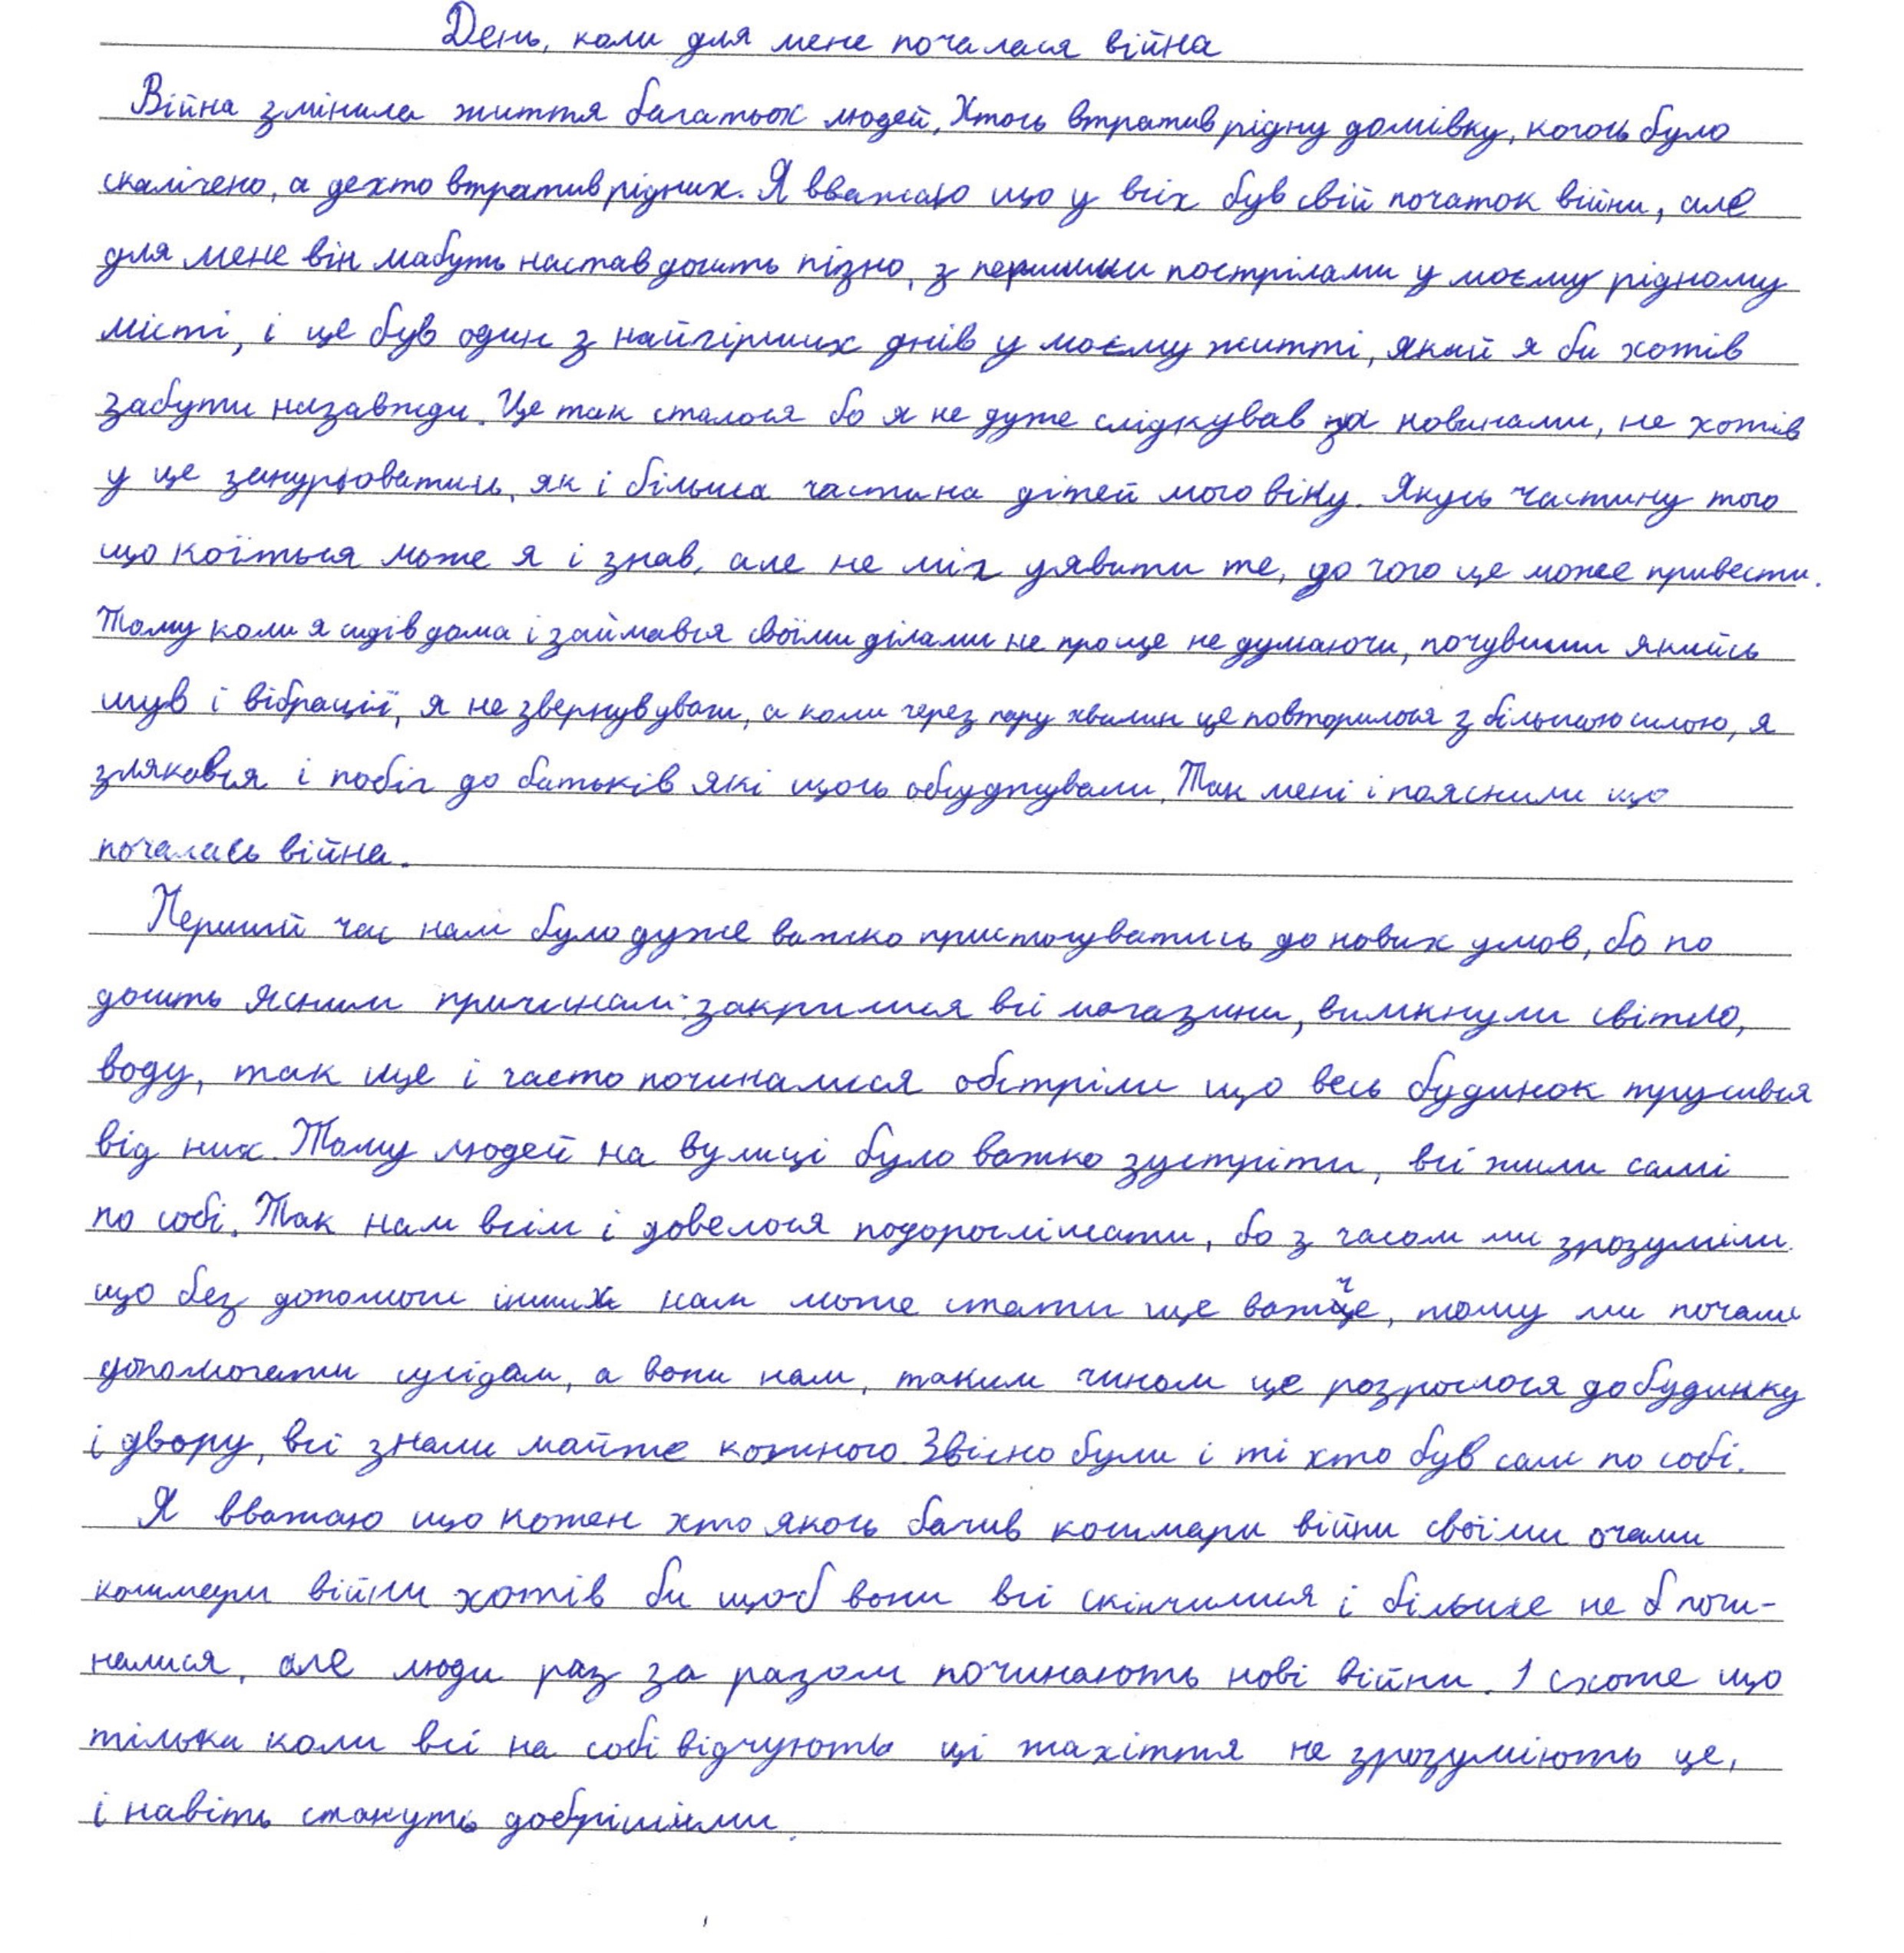 День, коли для мене почалася війна
Війна змінила життя багатьох людей, Хтось втратив рідну домівку, когось було
скалічено, а дехто втратив рідних. Я вважаю що у всіх був свій початок війни, але
для мене він мабуть настав досить пізно, з першими пострілами у моєму рідному
місті, і це був один з найгірших днів у моєму житті, який я би хотів
забути назавжди. Це так сталося бо я не дуже слідкував за новинами, не хотів
у це занурюватись, як і більша частина дітей мого віку. Якусь частину того
що коїться може я і знав, але не міг уявити те, до чого це може привести.
Тому коли я сидів дома і займався своїми ділами не про це не думаючи, почувши якийсь
шув і вібрації, я не звернув уваги, а коли через пару хвилин це повторилося з більшою силою, я
злякався і побіг до батьків які щось обсуджували. Так мені і пояснили що
почалась війна.
Перший час нам було дуже важко пристосуватись до нових умов, бо по
досить ясним причинам: закрилися всі магазини, вимкнули світло,
воду, так ще і часто починалися обстріли що весь будинок трусився
від них. Тому людей на вулиці було важко зустріти, всі жили самі
по собі. Так нам всім і довелося подорослішати, бо з часом ми зрозуміли
що без допомоги інших нам може стати ще важче, тому ми почали
допомогати сусідам, а вони нам, таким чином це розрослося до будинку
і двору, всі знали майже кожного. Звісно були і ті хто був сам по собі.
Я вважаю що кожен хто якось бачив кошмари війни своїми очами
кошмари війни хотів би щоб вони всі скінчилися і більше не б почи-
налися, але люди раз за разом починають нові війни. І схоже що
тільки коли всі на собі відчують ці жахіття не зрозуміють це,
і навіть стануть добрішими.